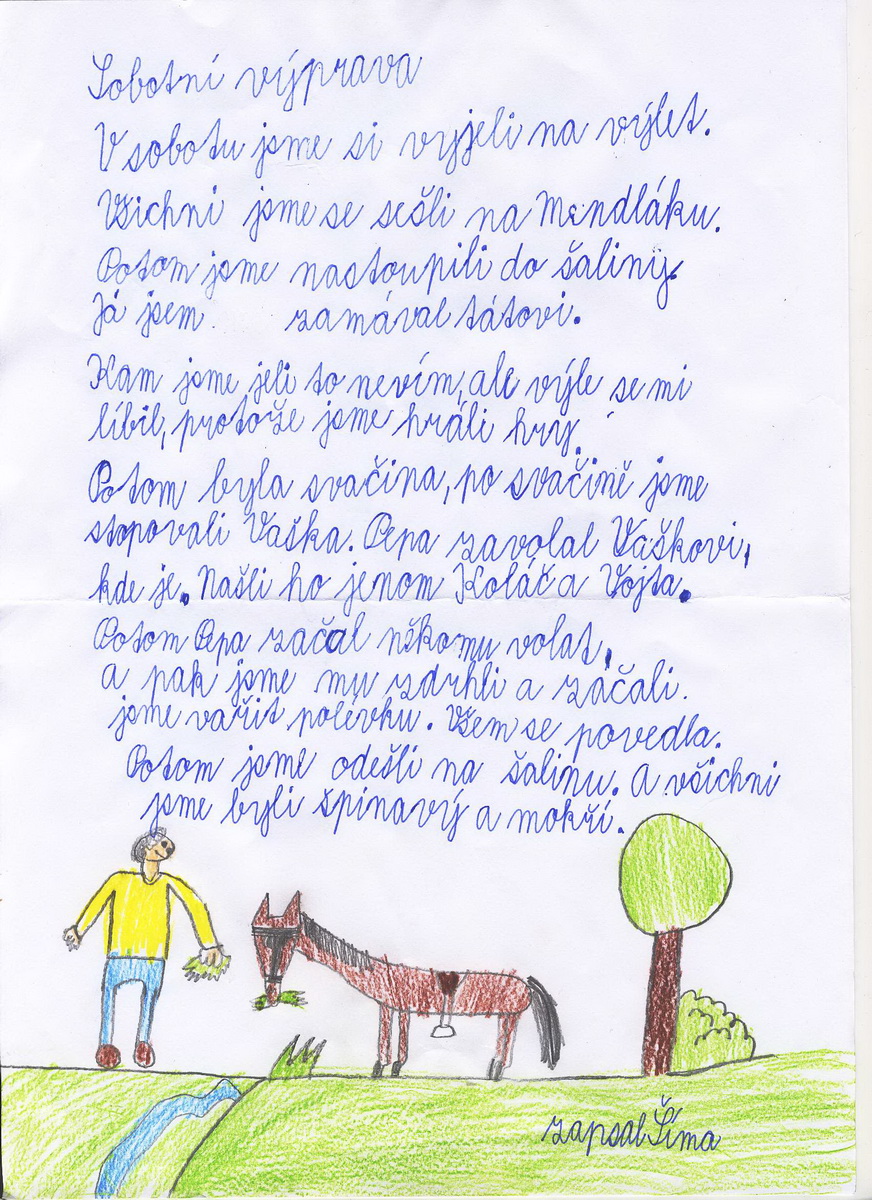 Sobotní výprava
V sobotu jsme si vyjeli na výlet.
Všichni jsme se sešli na Mendláku.
Potom jsme nastoupili do šaliny.
Já jsem zamával tátovi.
Kam jsme jeli to nevím, ale výle se mi
líbil, protože jsme hráli hry.
Potom byla svačina, po svačině jsme
stopovali Vaška. Pepa zavolal Vaškovi,
kde je. Našli ho jenom Koláč a Vojta.
Potom Pepa začal někomu volat,
a pak jsme mu zdrhli a začali.
jsme vařit polévku. Všem se povedla.
Potom jsme odešli na šalinu. A všichni
jsme byli špinavý a mokří.
zapsal Šíma